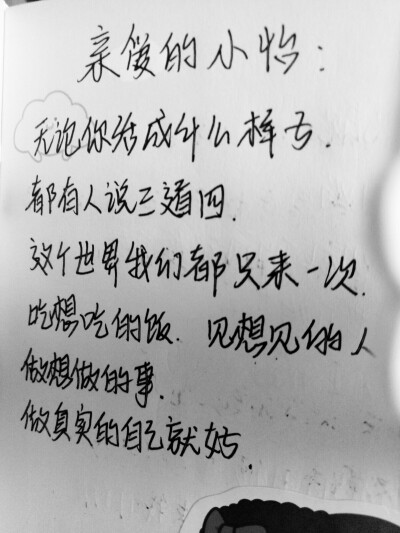 亲爱的小怡:
无论你活成什么样子.
都有人说三道四.
这个世界我们都只来一次.
吃想吃的饭. 见想见的人
做想做的事.
做真实的自己就好.